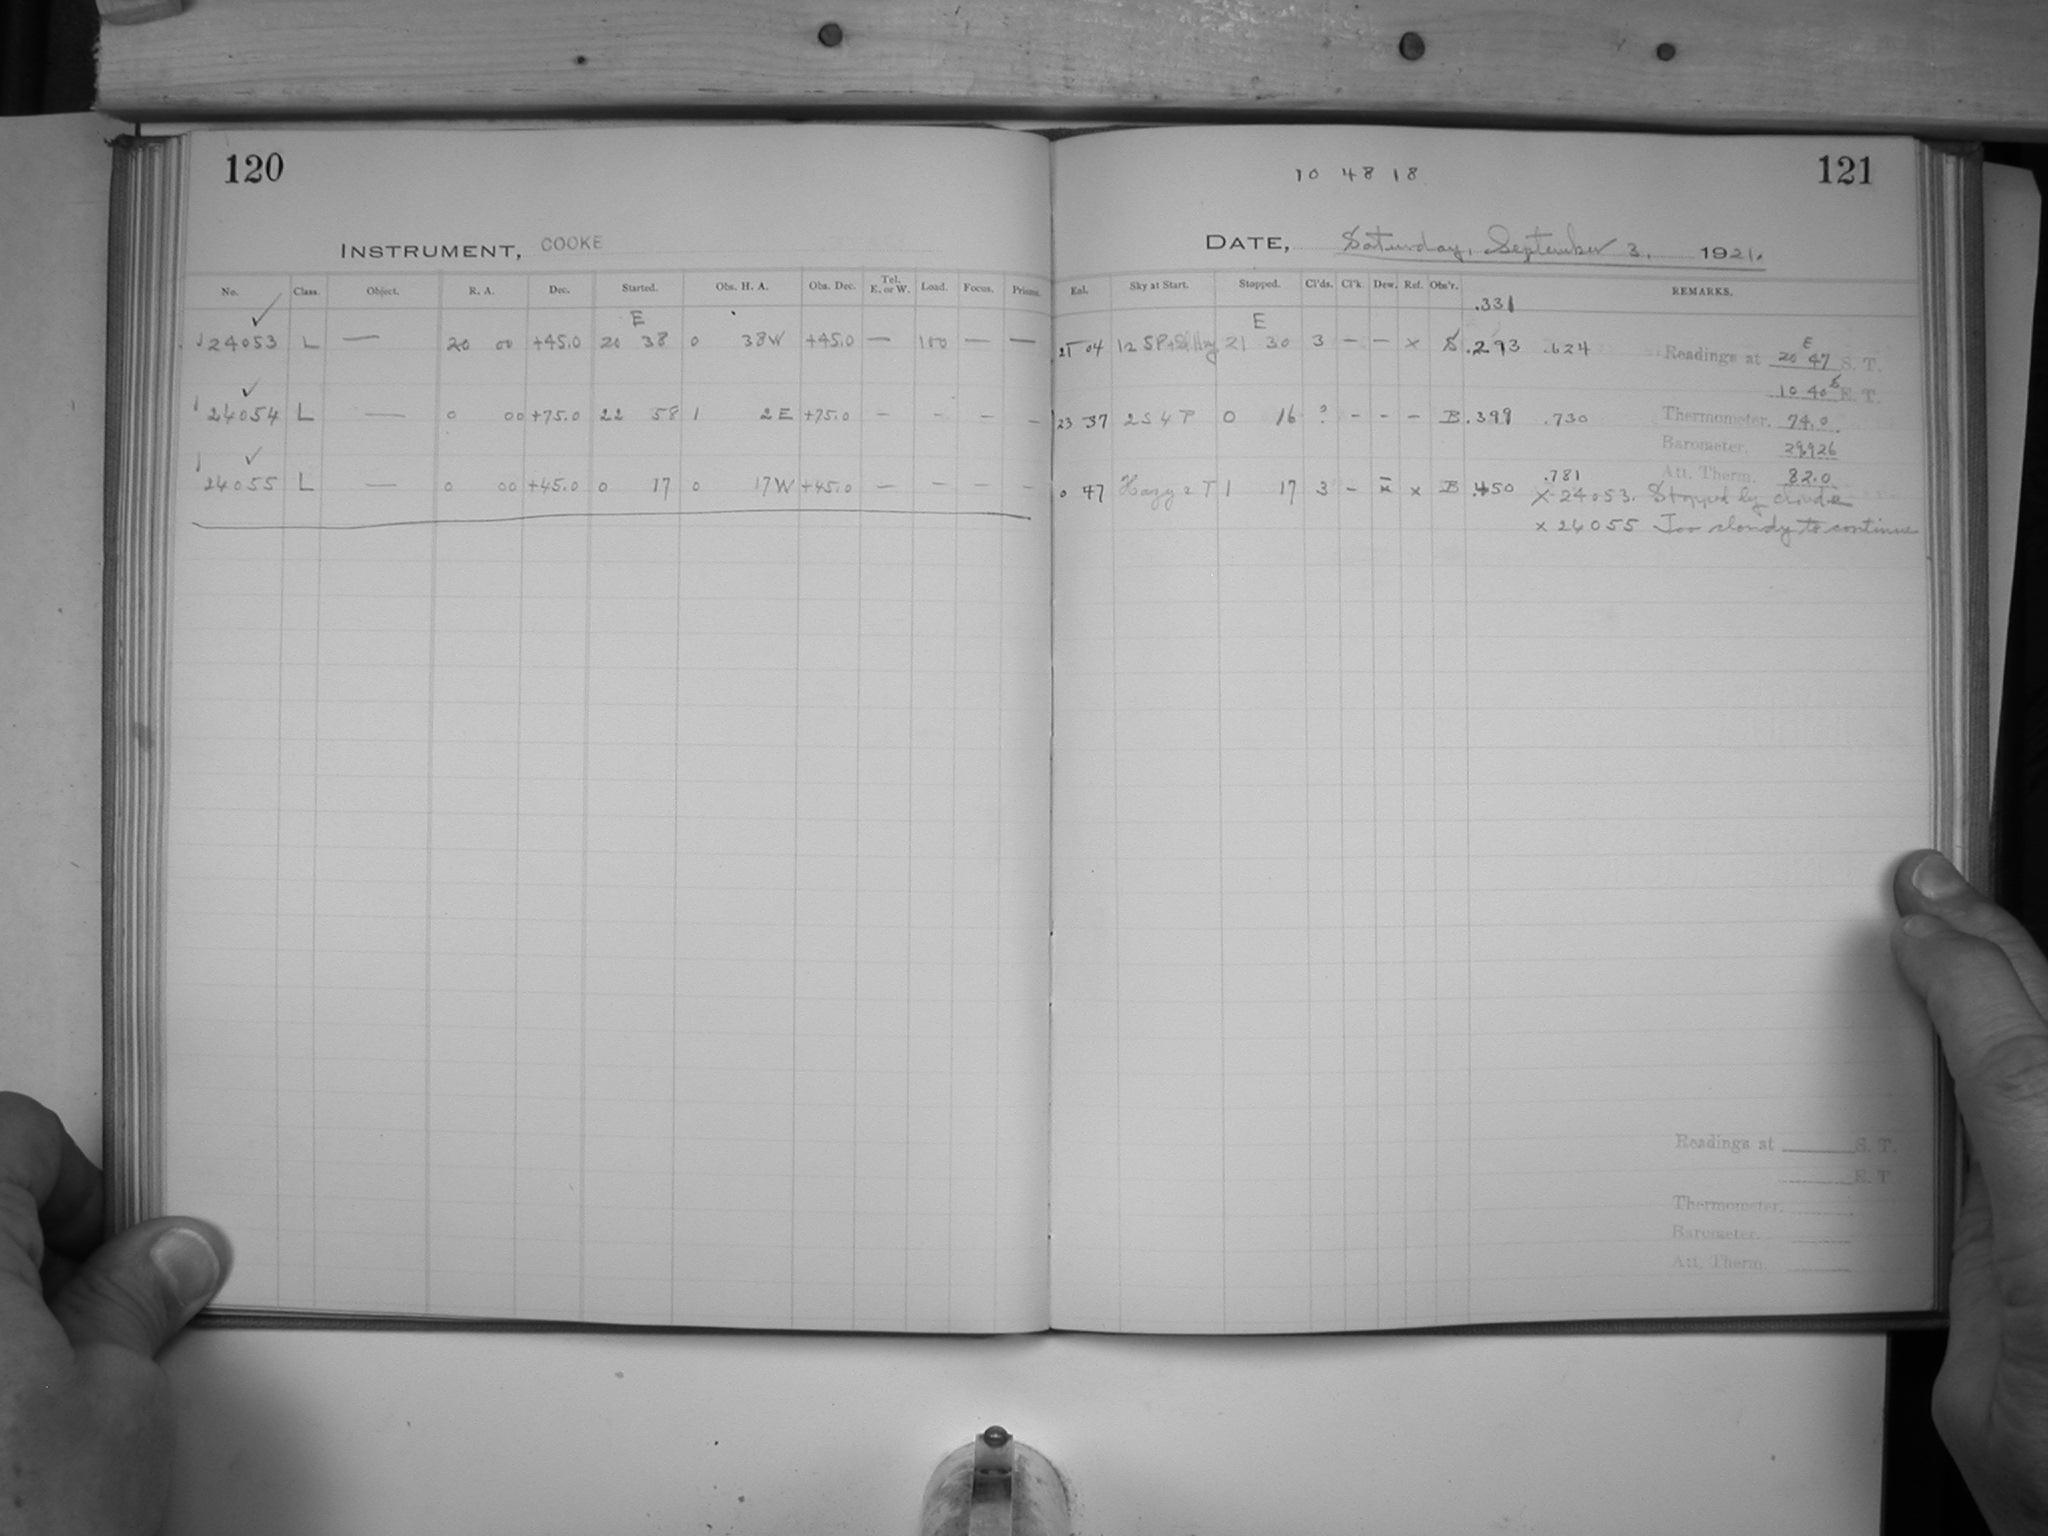 120
INSTRUMENT, COOKE
No. Class. Object. R. A. Dec. Started. Obs. H. A. Obs. Dec. Tel. E. or W. Load. Focus. Prisms.
E
24053 L — 20 00 +45.0 20 38 0 38W +45.0 — 100 — —
24054 L — 0 00 +75.0 22 58 1 2E +75.0 — — — —
24055 L — 0 00 +45.0 0 17 0 17W +45.0 — — — —
10 48 18
121
DATE, Saturday, September 3, 1921.
Eal. Sky at Start. Stopped. Cl'ds. Cl'k. Dew. Ref. Obs'r. REMARKS.
.331
E
21 04 12SP+Sl Hzy 21 30 3 — — x S .293 .624
23 37 2S4P 0 16 ? — — — B .399 .730
0 47 Hazy 2T 1 17 3 — x B .450 .781
Readings at E 20 47 S. T.
10 40 E. T.
Thermometer. 74.0
Barometer. 29.926
Att. Therm. 82.0
x 24053. Stopped by clouds
x 24055 Too cloudy to continue
Readings at S. T.
E. T
Thermometer.
Barometer.
Att. Therm.